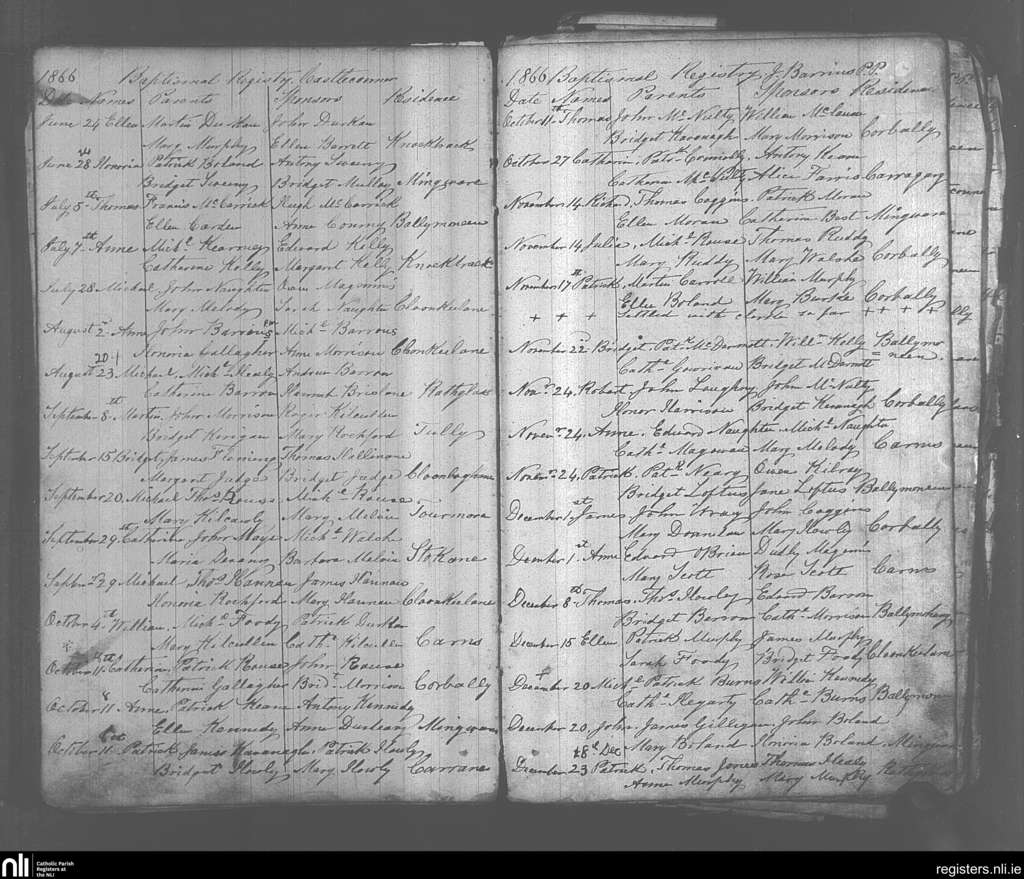 1866 Baptismal Registry, Castleconnor
Date Names Parents Sponsors Residence
June 24 Ellen Martin Durkan John Durkan
Mary Murphy Ellen Barrett Knockbrack
June 28 Honoria Patrick Boland Antony Sweeny
Bridget Sweeny Bridget Mullay Mingware
July 5th Thomas Francis McCarrick Hugh McCarrick
Ellen Carden Anne Conny Ballymoneen
July 7th Anne Michl. Kearney Edward Kelly
Catherine Kelly Margaret Kelly Knockbrack
July 28 Michael John Naughton Owen
Mary Melody Sarah Naughton Cloonkeelane
August 2 Anne John Barrons Michl. Barrons
20th Honoria Gallagher Anne Morrison Cloonkeelane
August 23, Michael, Michl. Healy Andrew Barron
Catherine Barron Hannah Brislane Rathglass
September 8th Martin John Morrison Roger Kilcullen
Bridget Kerigan Mary Rochford Tully
September 15 Bridget James Fleming Thomas
Margaret Judge Bridget Judge
September 20, Michael Thos. Rouse Michl. Rouse
Mary Kilcawly Mary Melvin Tourmore
September 29th Catherine John Hoye Michl. Walsh
Maria Barbara Melvin Stokane
Septber 29 Michael Thos. Hannan James Hannan
Honoria Rochford Mary Hannan Cloonkeelane
October 4th William, Michl. Foody Patrick Durkan
Mary Kilcullen Cathe. Kilcullen Carns
October 11 Catherine Patrick Rouse John Rouse
Catherine Gallagher Bridt. Morrison Corbally
October 11 Anne Patrick Keane Antony Kennedy
Ellen Kennedy Anne Mingware
October 11 Patrick James Kavanagh, Patrick Howly
Bridget Howly Mary Howly Carrane
1866 Baptismal Registry J. Barrins P.P.
Date Names Parents Sponsors Residence
October 11th Thomas John McNulty William
Bridget Kavanagh Mary Morrison Corbally
October 27 Catharin Patk. Connolly Antony Keane
Catherine McNulty Alice Farris
November 14, Richard, Thomas Coggins Patrick Moran
Ellen Moran Catherine Best Mingware
November 14, Julia, Michl. Rouse Thomas Ruddy
Mary Ruddy Mary Walshe Corbally
November 17th Patrick Martin Carroll William Murphy
Ellen Boland Mary Burke Corbally
+ + + Settled with clerke so far + + + +
November 22 Bridget Patk. McDermott Willm. Kelly Ballymo
Cathe. Bridget McDermott =neen
Novr. 24, Robert, John Loughry John McNulty
Honor Harrison Bridget Kavanagh Corbally
Novemr. 24. Anne, Edward Naughton Michl. Naughton
Cathe. Magowan Mary Melody Carns
Novemr. 24, Patrick Patk. Neary Owen Kilroy
Bridget Loftus Jane Loftus Ballymoneen
December 1st James John Wray John Coggins
Mary Donnelan Mary Howly Corbally
December 1st Anne Edward O'Brien Dudly
Mary Scott Rose Scott Carns
December 8th Thomas, Thos. Howley Edward Barron
Bridget Barron Cathe. Morrison
December 15 Ellen Patrick Murphy James Murphy
Sarah Foody Bridget Foody Cloonkeelane
December 20 Michl. Patrick Burns Willm Kennedy
Cathe. Hegarty Cathe. Burns Ballymoneen
December 20, John James Gilligan John Boland
18th Dec Mary Boland Honoria Boland, Mingware
December 23 Patrick, Thomas Jones Thomas Healy
Anne Murphy Mary Murphy
nli Catholic Parish
Registers at
the NLI
registers.nli.ie